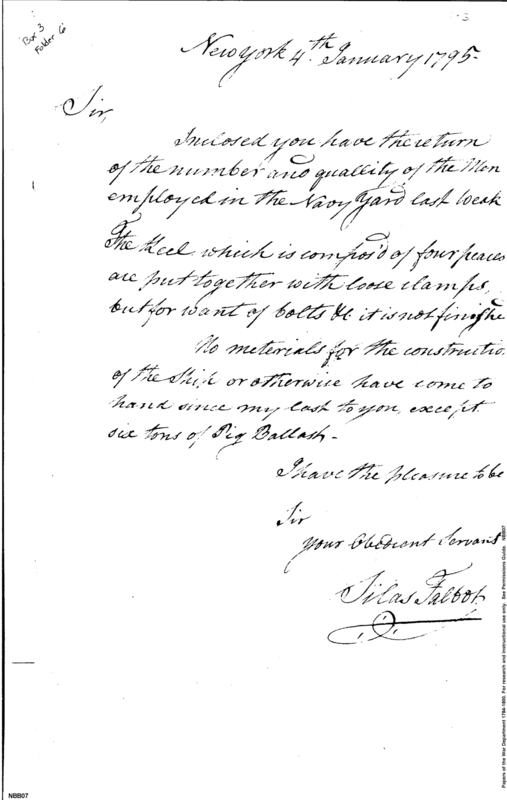 Box 3
Folder 6
3
New york 4th January 1795-
Sir,
Inclosed you have the return
of the number and quallity of the Men
employed in the Navy Yard last Weak
The Keel which is compos'd of four peaces
are put together with loose clamps,
but for want of bolts &c it is not finishe
No meterials for the constructio
of the Ship or otherwise have come to
hand since my last to you, except
six tons of Pig Ballast-
I have the pleasure to be
Sir
your Obedient Servant
Silas Talbot
Papers of the War Department 1784-1800. For research and instructional use only. See Permissions Guide. NBB07
NBB07